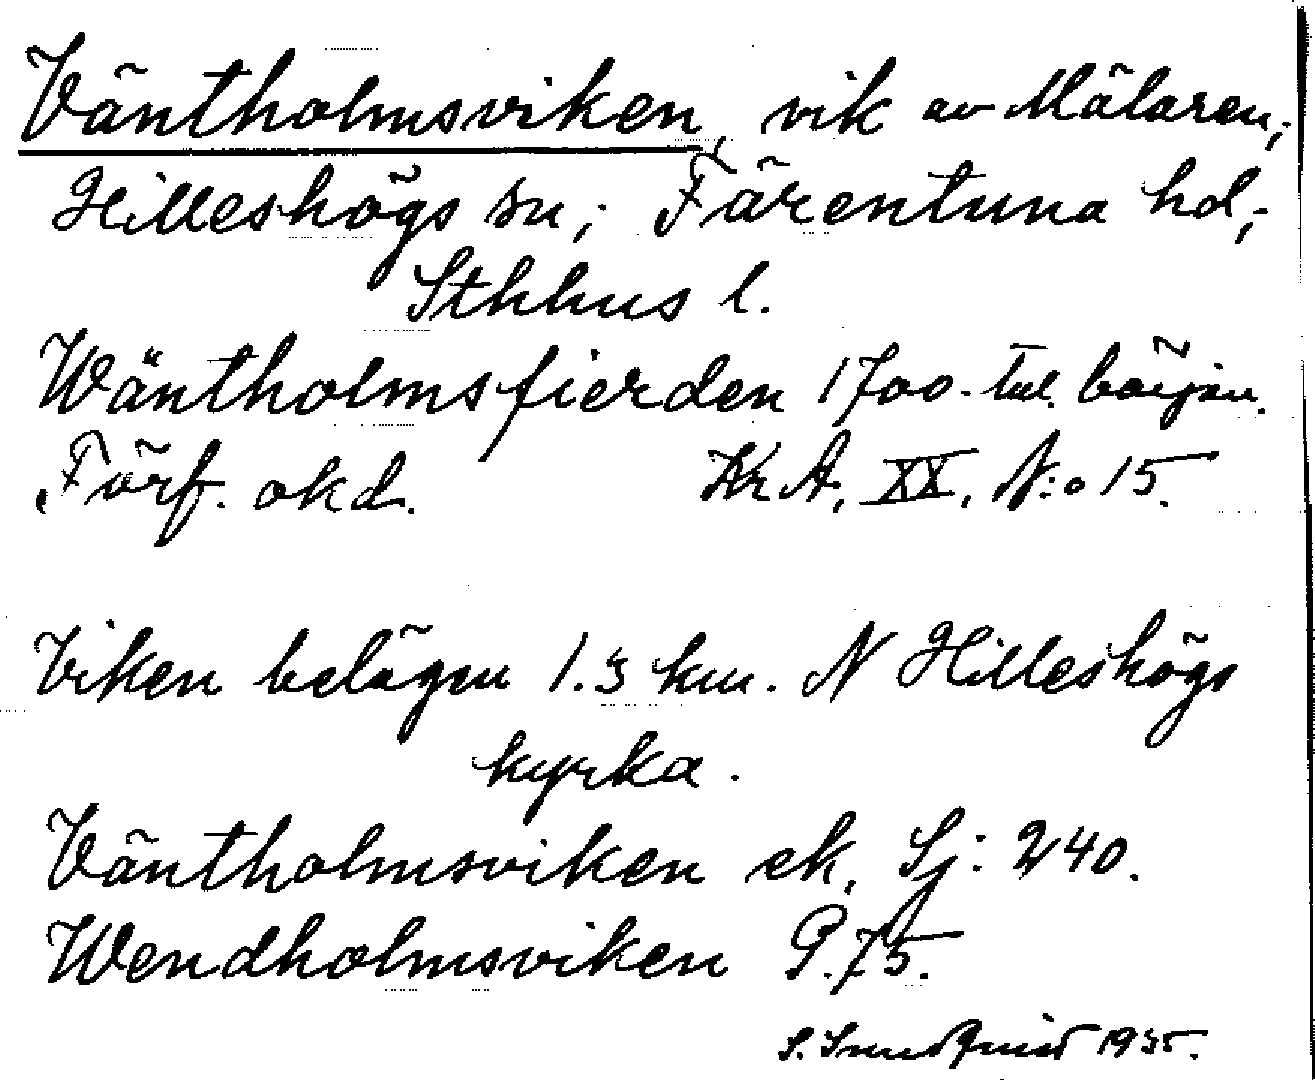 Väntholmsviken, vik av Mälaren,
Hilleshögs sn, Färentuna hd,
Sthlms l.
Wäntholmsfierden 1700-tal. början.
Förf. okd. Kr A, XX, N:o 15.
Viken belägen 1.3 km. N Hilleshögs
kyrka.
Väntholmsviken ek, Sj: 240.
Wendholmsviken P. 75.
S. Sundquist 1935.